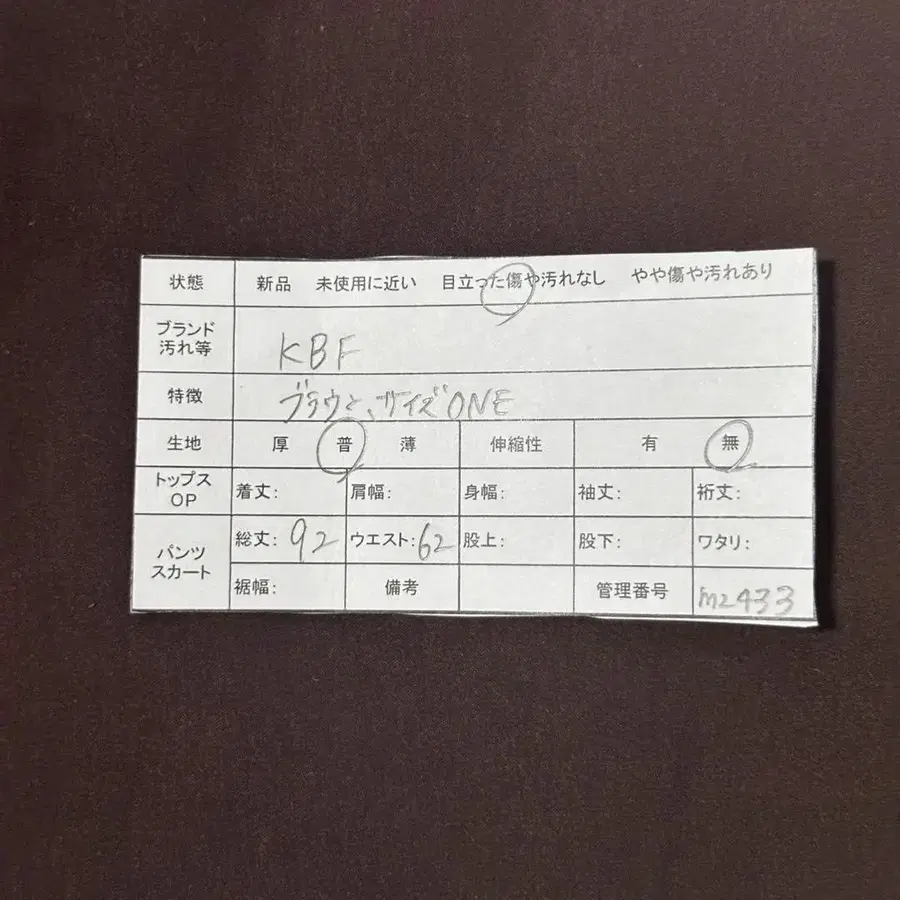 状態 新品 未使用に近い 目立った傷や汚れなし やや傷や汚れあり
ブランド
汚れ等 KBF
特徴 ブラウン、サイズONE
生地 厚 普 薄 伸縮性 有 無
トップス
OP 着丈: 肩幅: 身幅: 袖丈: 裄丈:
パンツ
スカート 総丈: 92 ウエスト: 62 股上: 股下: ワタリ:
裾幅: 備考 管理番号 m2433